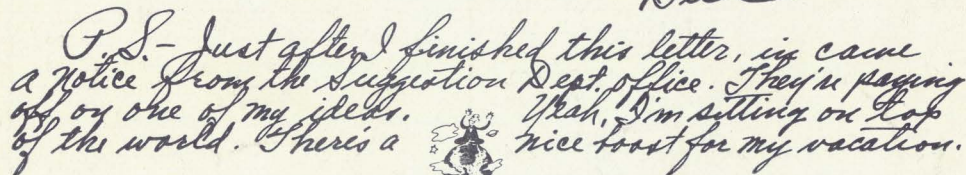 P.S. - Just after I finished this letter, in came
a notice from the Suggestion Dept. office. They're paying
off on one of my ideas. Yeah, I'm sitting on top
of the world. There's a nice boost for my vacation.